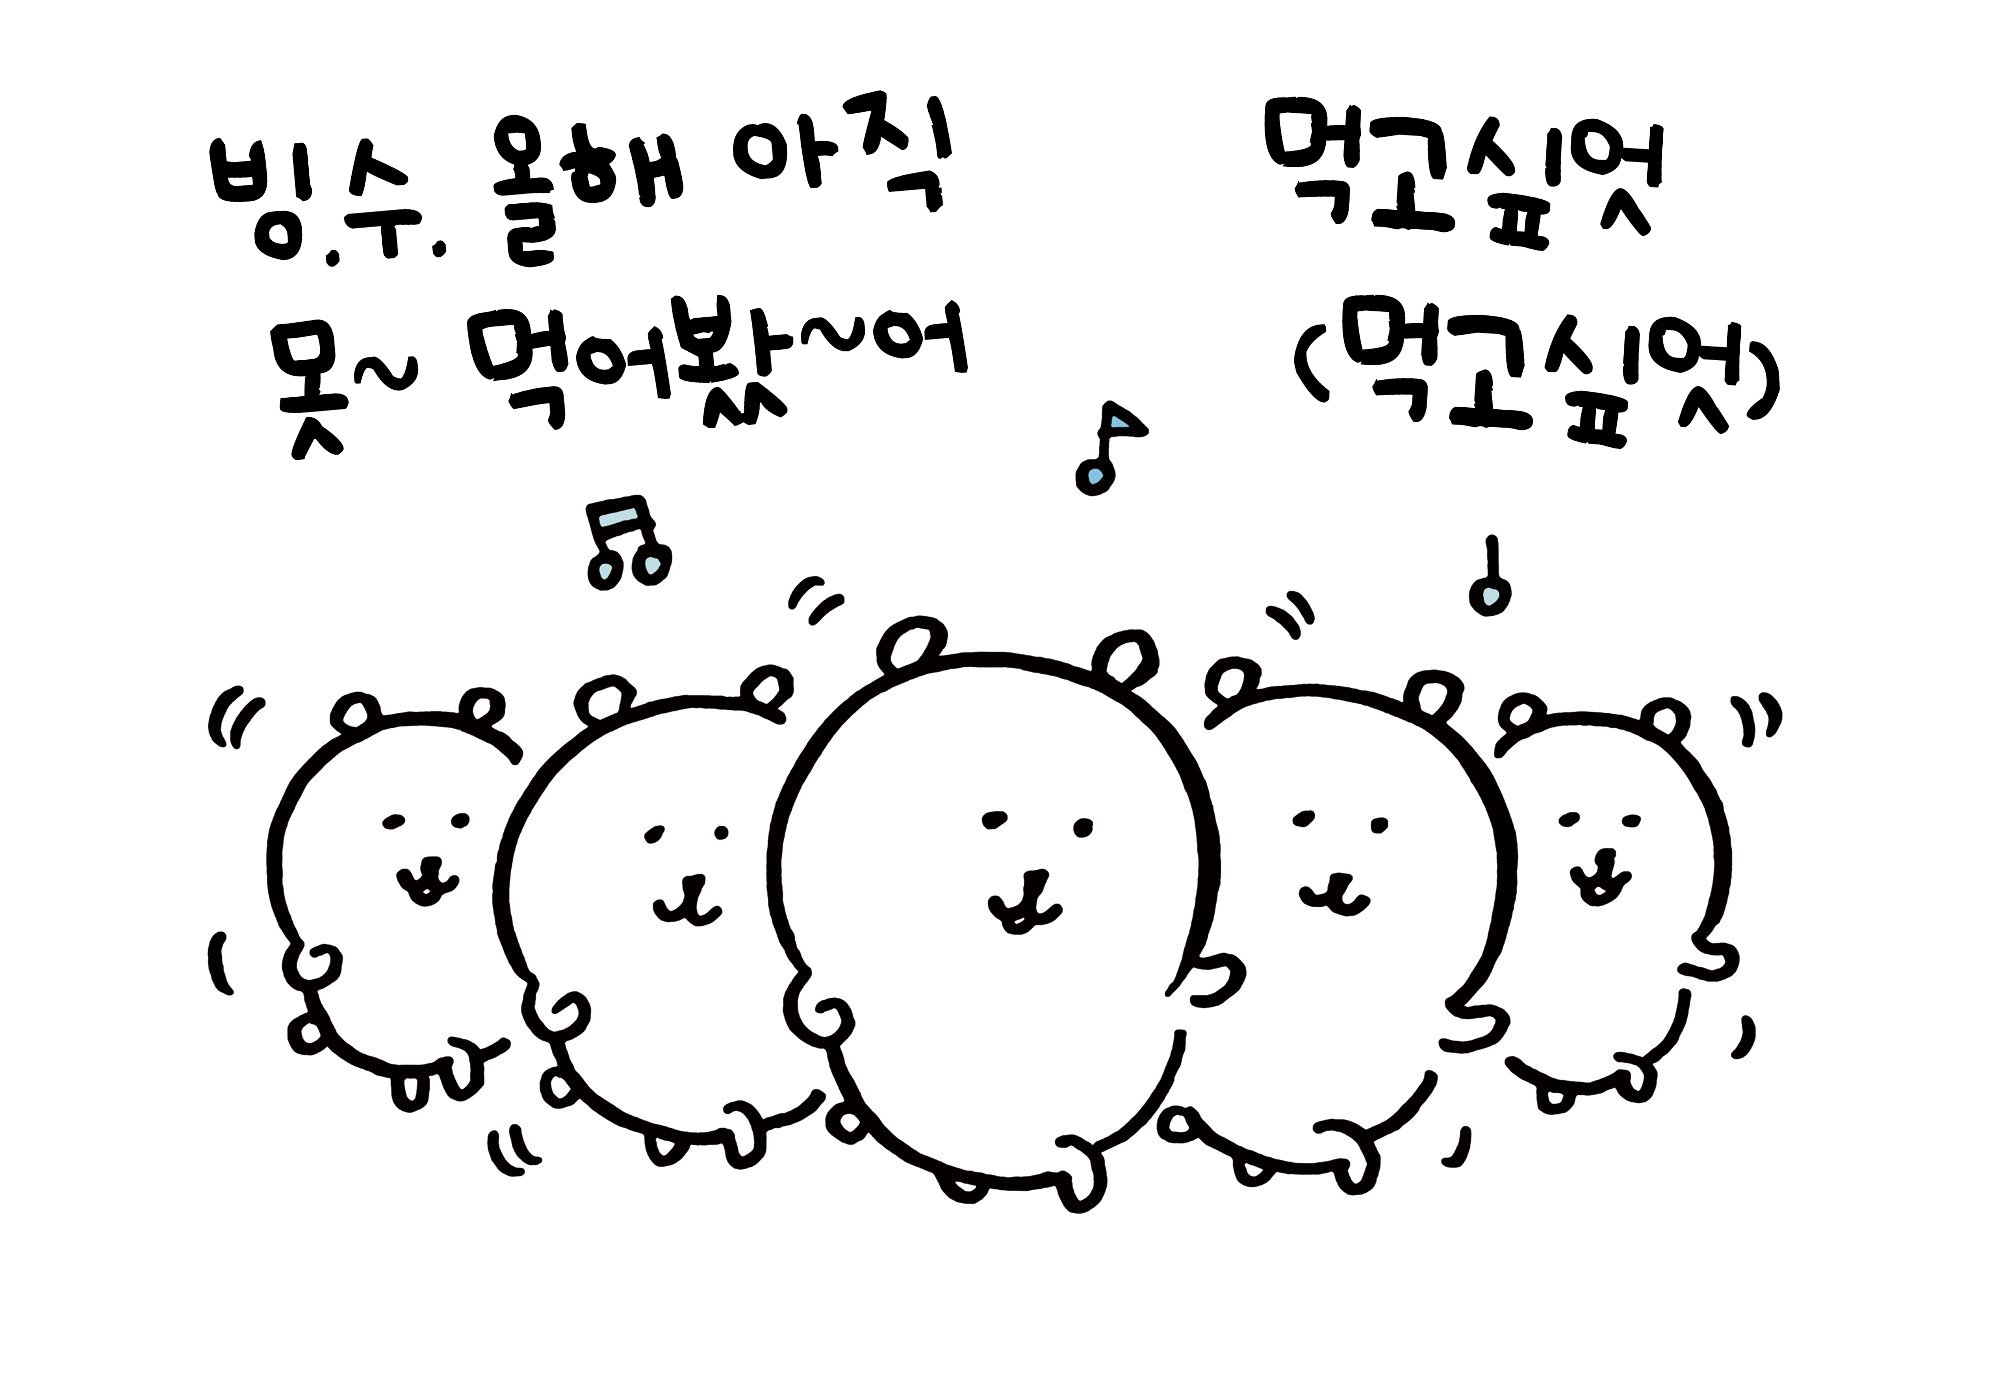 빙.수. 올해 아직
못~ 먹어봤~어
먹고싶엇
(먹고싶엇)